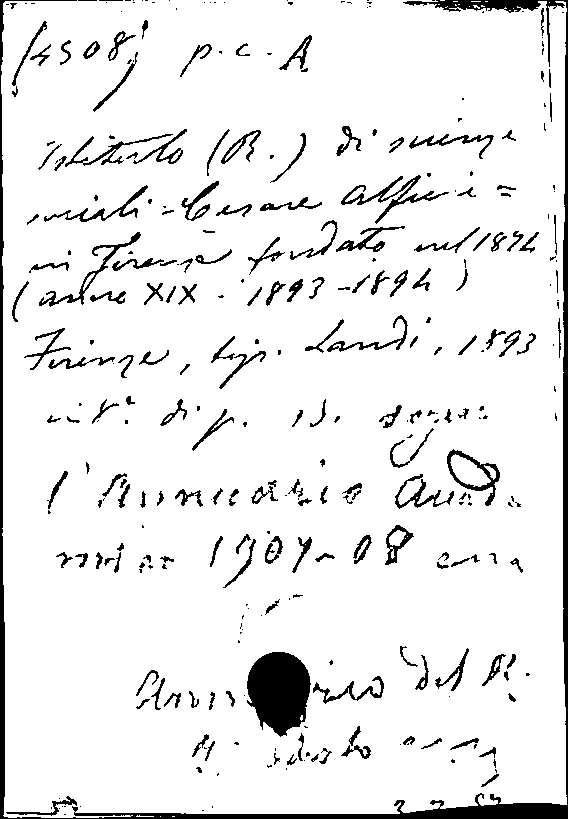 (4508) p.c. A
Istituto (R.) di scienze
sociali "Cesare Alfieri"
in Firenze fondato nel 1874
(anno XIX. 1893-1894)
Firenze, tip. Landi, 1893
in 8º. di p. segue
l'Annuario Acca
1907-08
Annuario del R.